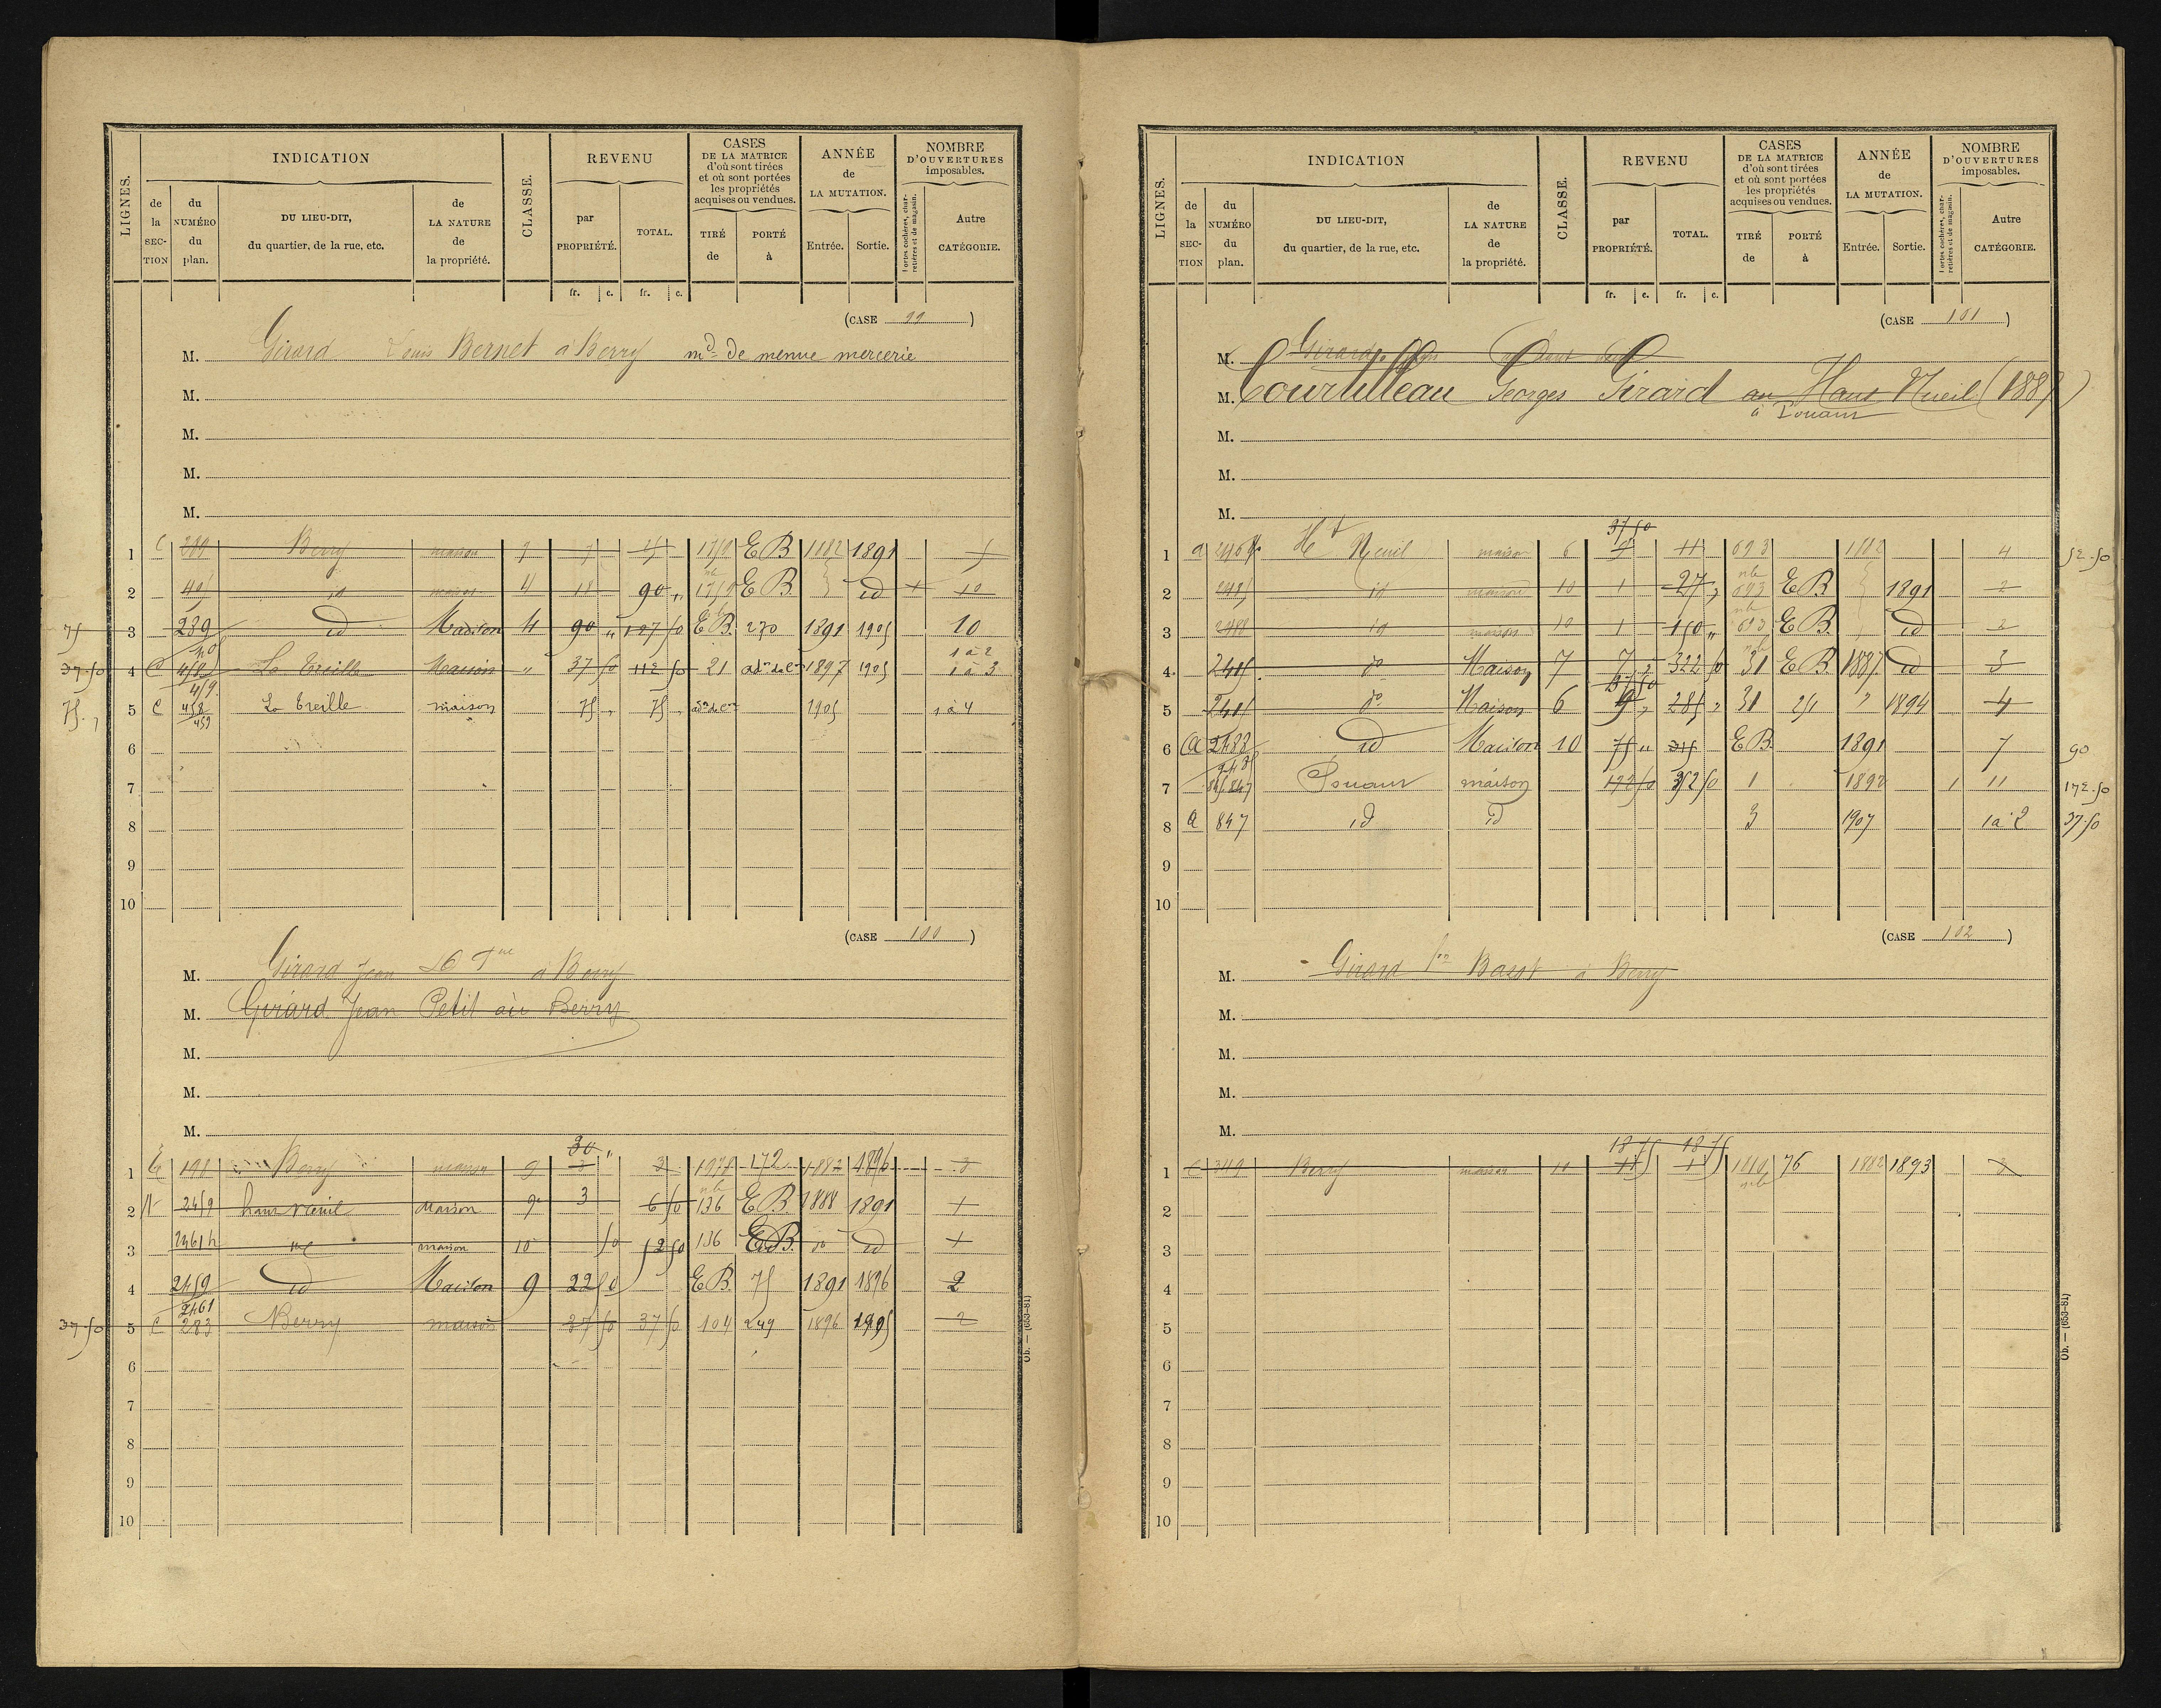 LIGNES. INDICATION CLASSE. REVENU CASES DE LA MATRICE d'où sont tirées et où sont portées les propriétés acquises ou vendues. ANNÉE de LA MUTATION. NOMBRE D'OUVERTURES imposables.
de la SECTION du NUMÉRO du plan. DU LIEU-DIT, du quartier, de la rue, etc. de LA NATURE de la propriété. par PROPRIÉTÉ. TOTAL. TIRÉ de PORTÉ à Entrée. Sortie. Portes cochères, charretières et de magasin. Autre CATÉGORIE.
fr. c. fr. c.
(CASE 99 )
M. Girard Louis Bernet à Berry md de menue mercerie
M.
M.
M.
M.
1 C Berry maison EB 1882 1891
2 id maison 4 18 90 „ EB id 10
75 3 289 id Maison 4 90 „ EB 270 1891 1905 10
37.50 4 C 458 459 La Treille Maison „ 37 50 112 50 21 1897 1905 1 à 2 1 à 3
75 „ 5 C 458 459 La treille maison 75 „ 75 „ 1905 1 à 4
6
7
8
9
10
(CASE 100 )
M. Girard Jean à Berry
M. Girard Jean Petit au Berry
M.
M.
M.
30 „
1 Berry maison 9 3 3 172 1882 1896 3
2 2459 haut nieuil Maison 9 3 6 50 136 EB 1888 1891 1
3 2461 id maison 10 50 12 50 136 EB. do id 1
4 2459 2461 id Maison 9 22 50 EB. 75 1891 1896 2
37.50 5 C 283 Berry maison 37 50 37 50 104 249 1896 1905 2
6
7
8
9
10
Ob. — (653-81)
LIGNES. INDICATION CLASSE. REVENU CASES DE LA MATRICE d'où sont tirées et où sont portées les propriétés acquises ou vendues. ANNÉE de LA MUTATION. NOMBRE D'OUVERTURES imposables.
de la SECTION du NUMÉRO du plan. DU LIEU-DIT, du quartier, de la rue, etc. de LA NATURE de la propriété. par PROPRIÉTÉ. TOTAL. TIRÉ de PORTÉ à Entrée. Sortie. Portes cochères, charretières et de magasin. Autre CATÉGORIE.
fr. c. fr. c.
(CASE 101 )
M. Girard
M. Courtilleau Georges Girard au Haut Nueil (1887)
à Douam
M.
M.
M.
37 50
1 a Ht Nueil maison 6 9 11 693 1882 4 52.50
2 2485 id maison 10 1 27 „ 693 EB 1891 2
3 2488 id maison 10 1 150 „ 693 EB id 2
4 2485 do Maison 7 7 „ 322 50 31 EB 1887 id 3
37 50
5 2485 do Maison 6 9 „ 285 „ 31 251 „ 1894 4
6 a 2488 2485 id Maison 10 75 „ 315 EB 1891 7 90
7 845 847 maison 172 50 352 50 1 1892 1 11 172.50
8 a 847 id id 3 1907 1 à 2 37.50
9
10
(CASE 102 )
M. Girard Basst à Berry
M.
M.
M.
M.
18 75 18 75
1 C 349 Berry maison 11 76 1882 1893 3
2
3
4
5
6
7
8
9
10
Ob. — (653-81)